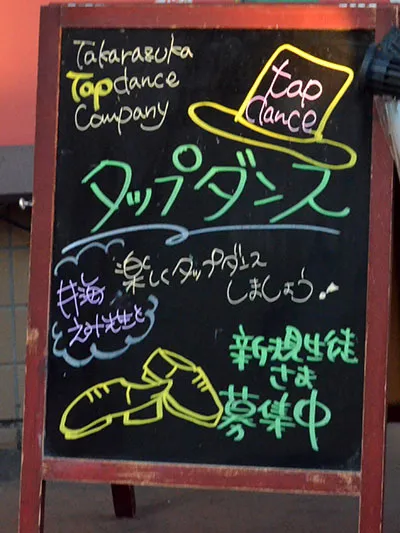 Takarazuka
Tapdance
Company
tap
dance
タップダンス
楽しくタップダンス
しましょう!
井海
先生と
新規生徒
さま
募集中